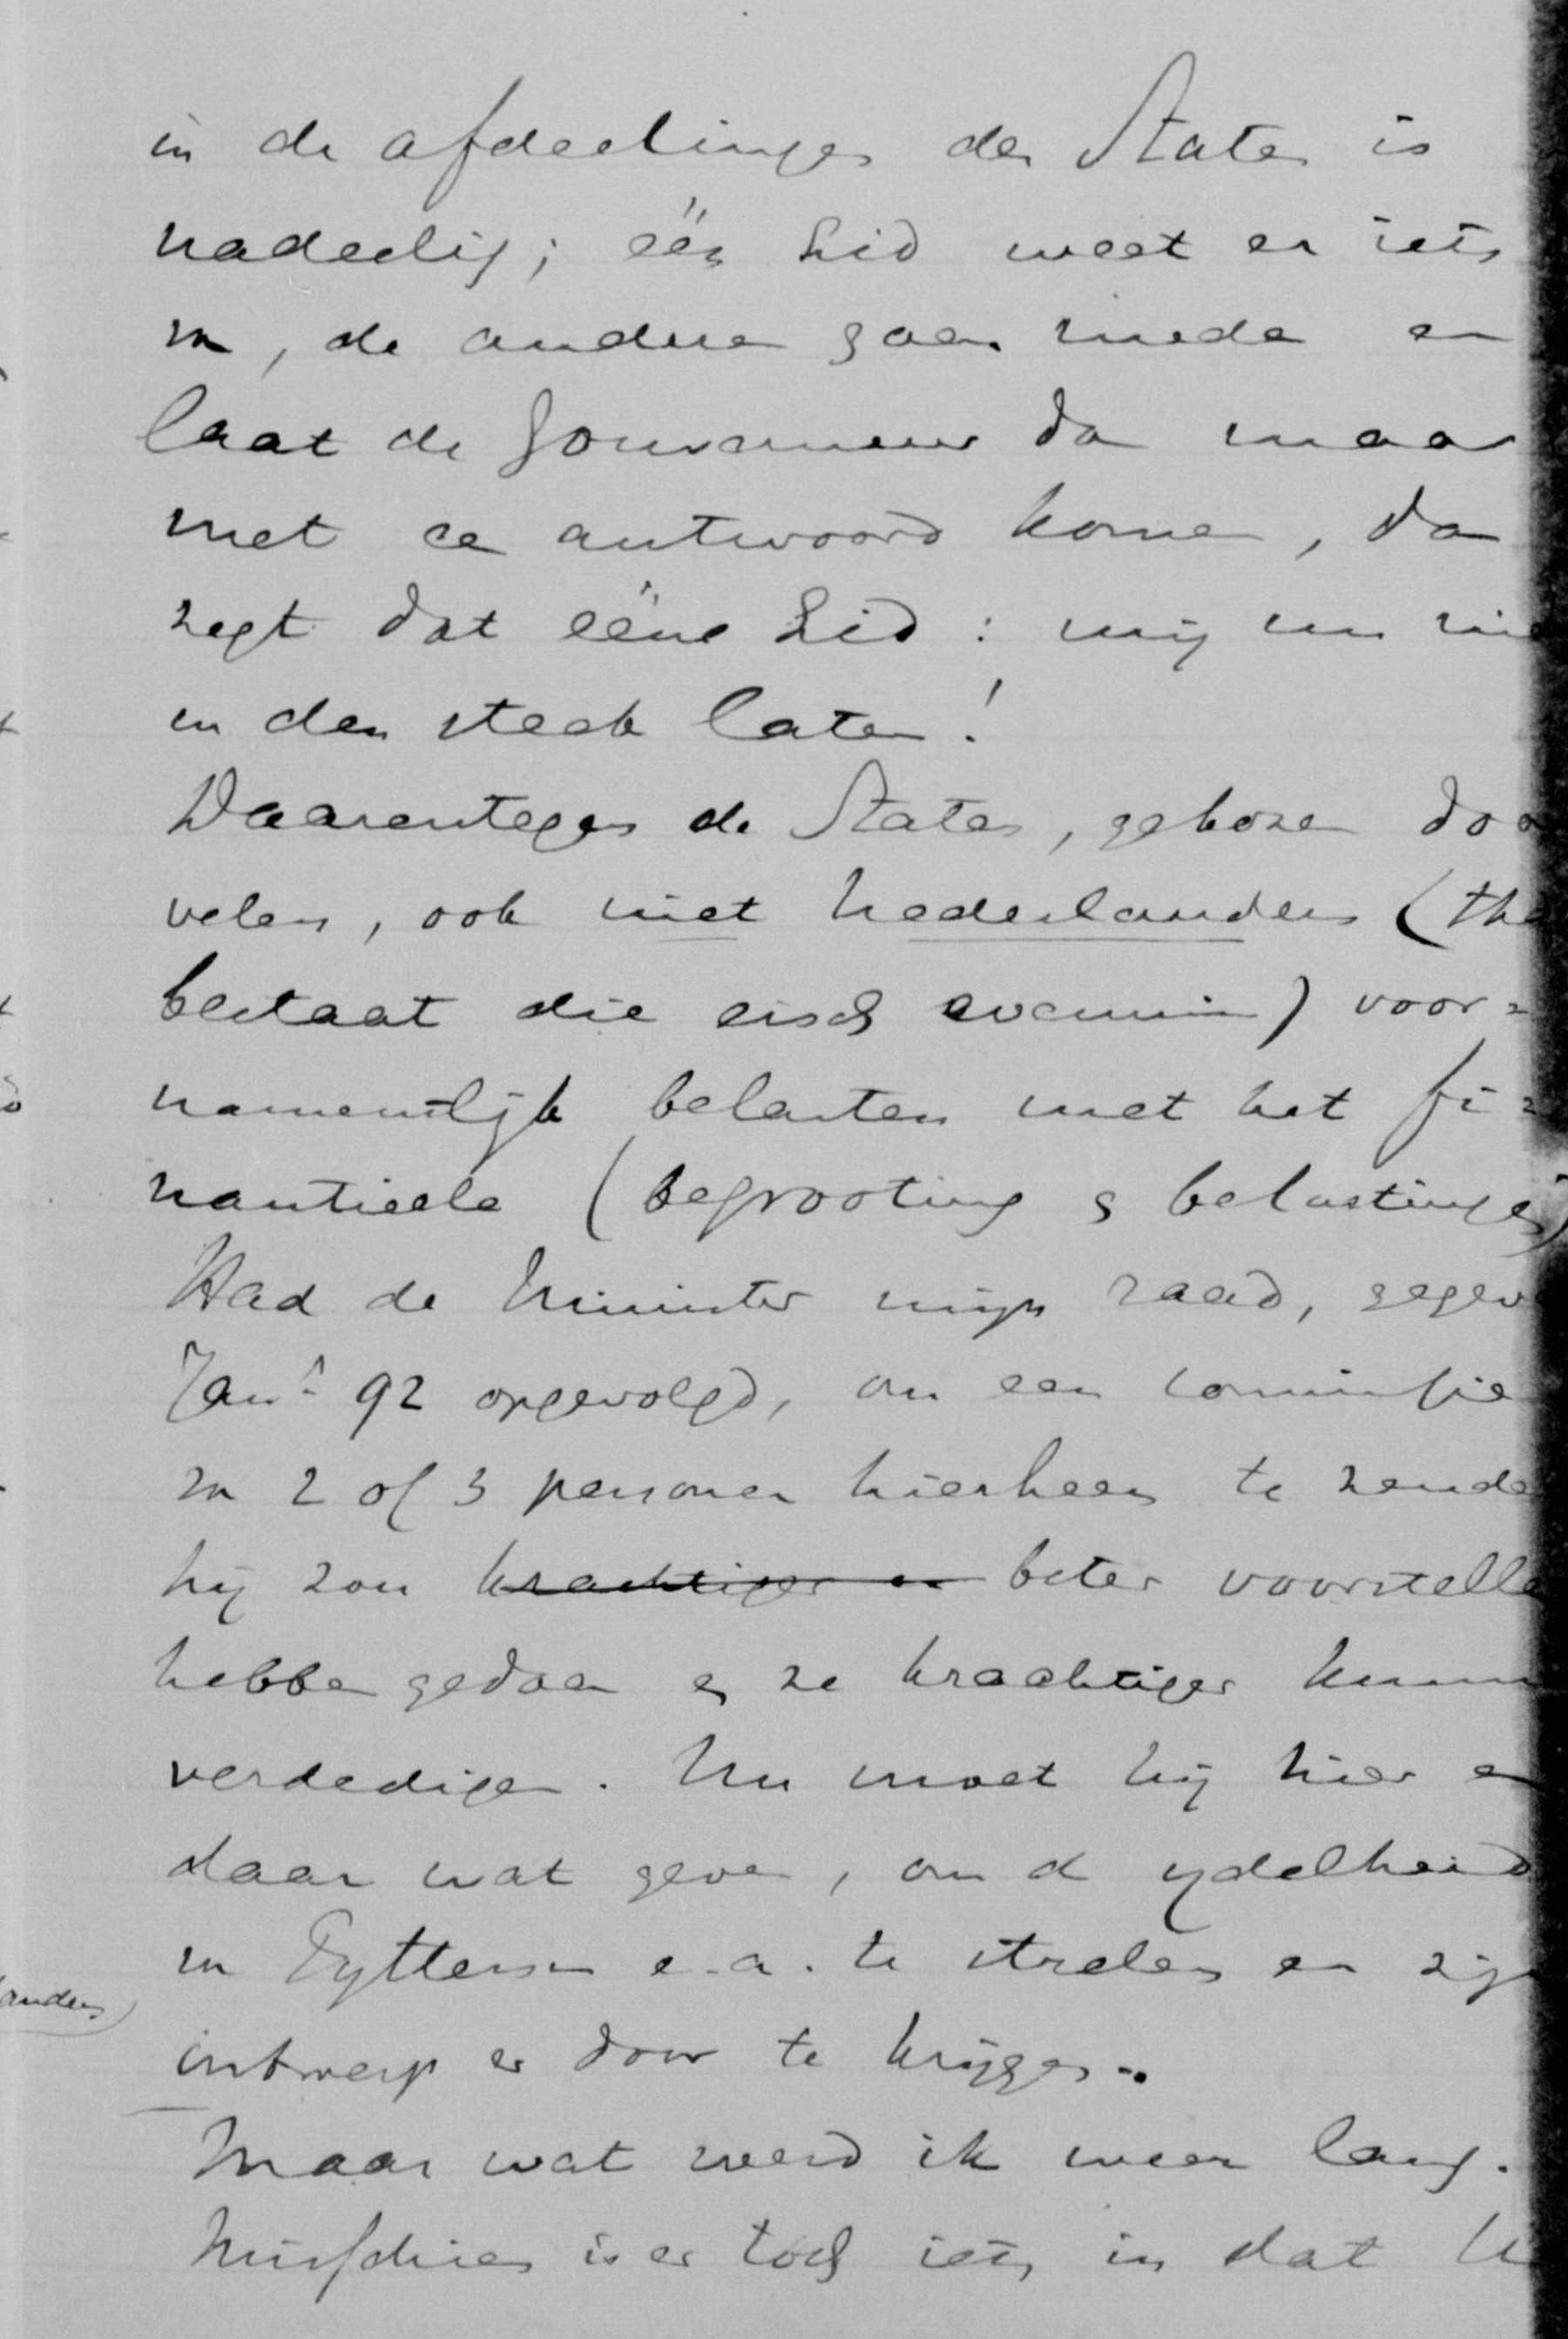 in de afdeelingen der Staten is
nadeelig; één Lid weet er iets
van, de andere gaan mede en
laat de Gouverneur dan maar
met een antwoord komen, dan
zegt dat ééne Lid: mij nu nie
in den steek laten!
Daarentegen de Staten, gekozen doo
velen, ook niet Nederlanders (tha
bestaat die eisch evenmin) voor=
namentlijk belasten met het fi=
nantieele (begrooting & belastingen)
Had de Minister mijn raad, gegev
Jan. 92 opgevolgd, om een commissie
van 2 of 3 personen hierheen te zende
hij zou krachtiger en beter voorstelle
hebben gedaan en ze krachtiger kunn
verdedigen. Nu moet hij hier en
daar wat geven, om d ydelheid
van Eyttersen e.a. te strelen en zijn
anders
ontwerp er door te krijgen.
Maar wat werd ik weer lang.
Misschien is er toch iets in dat U